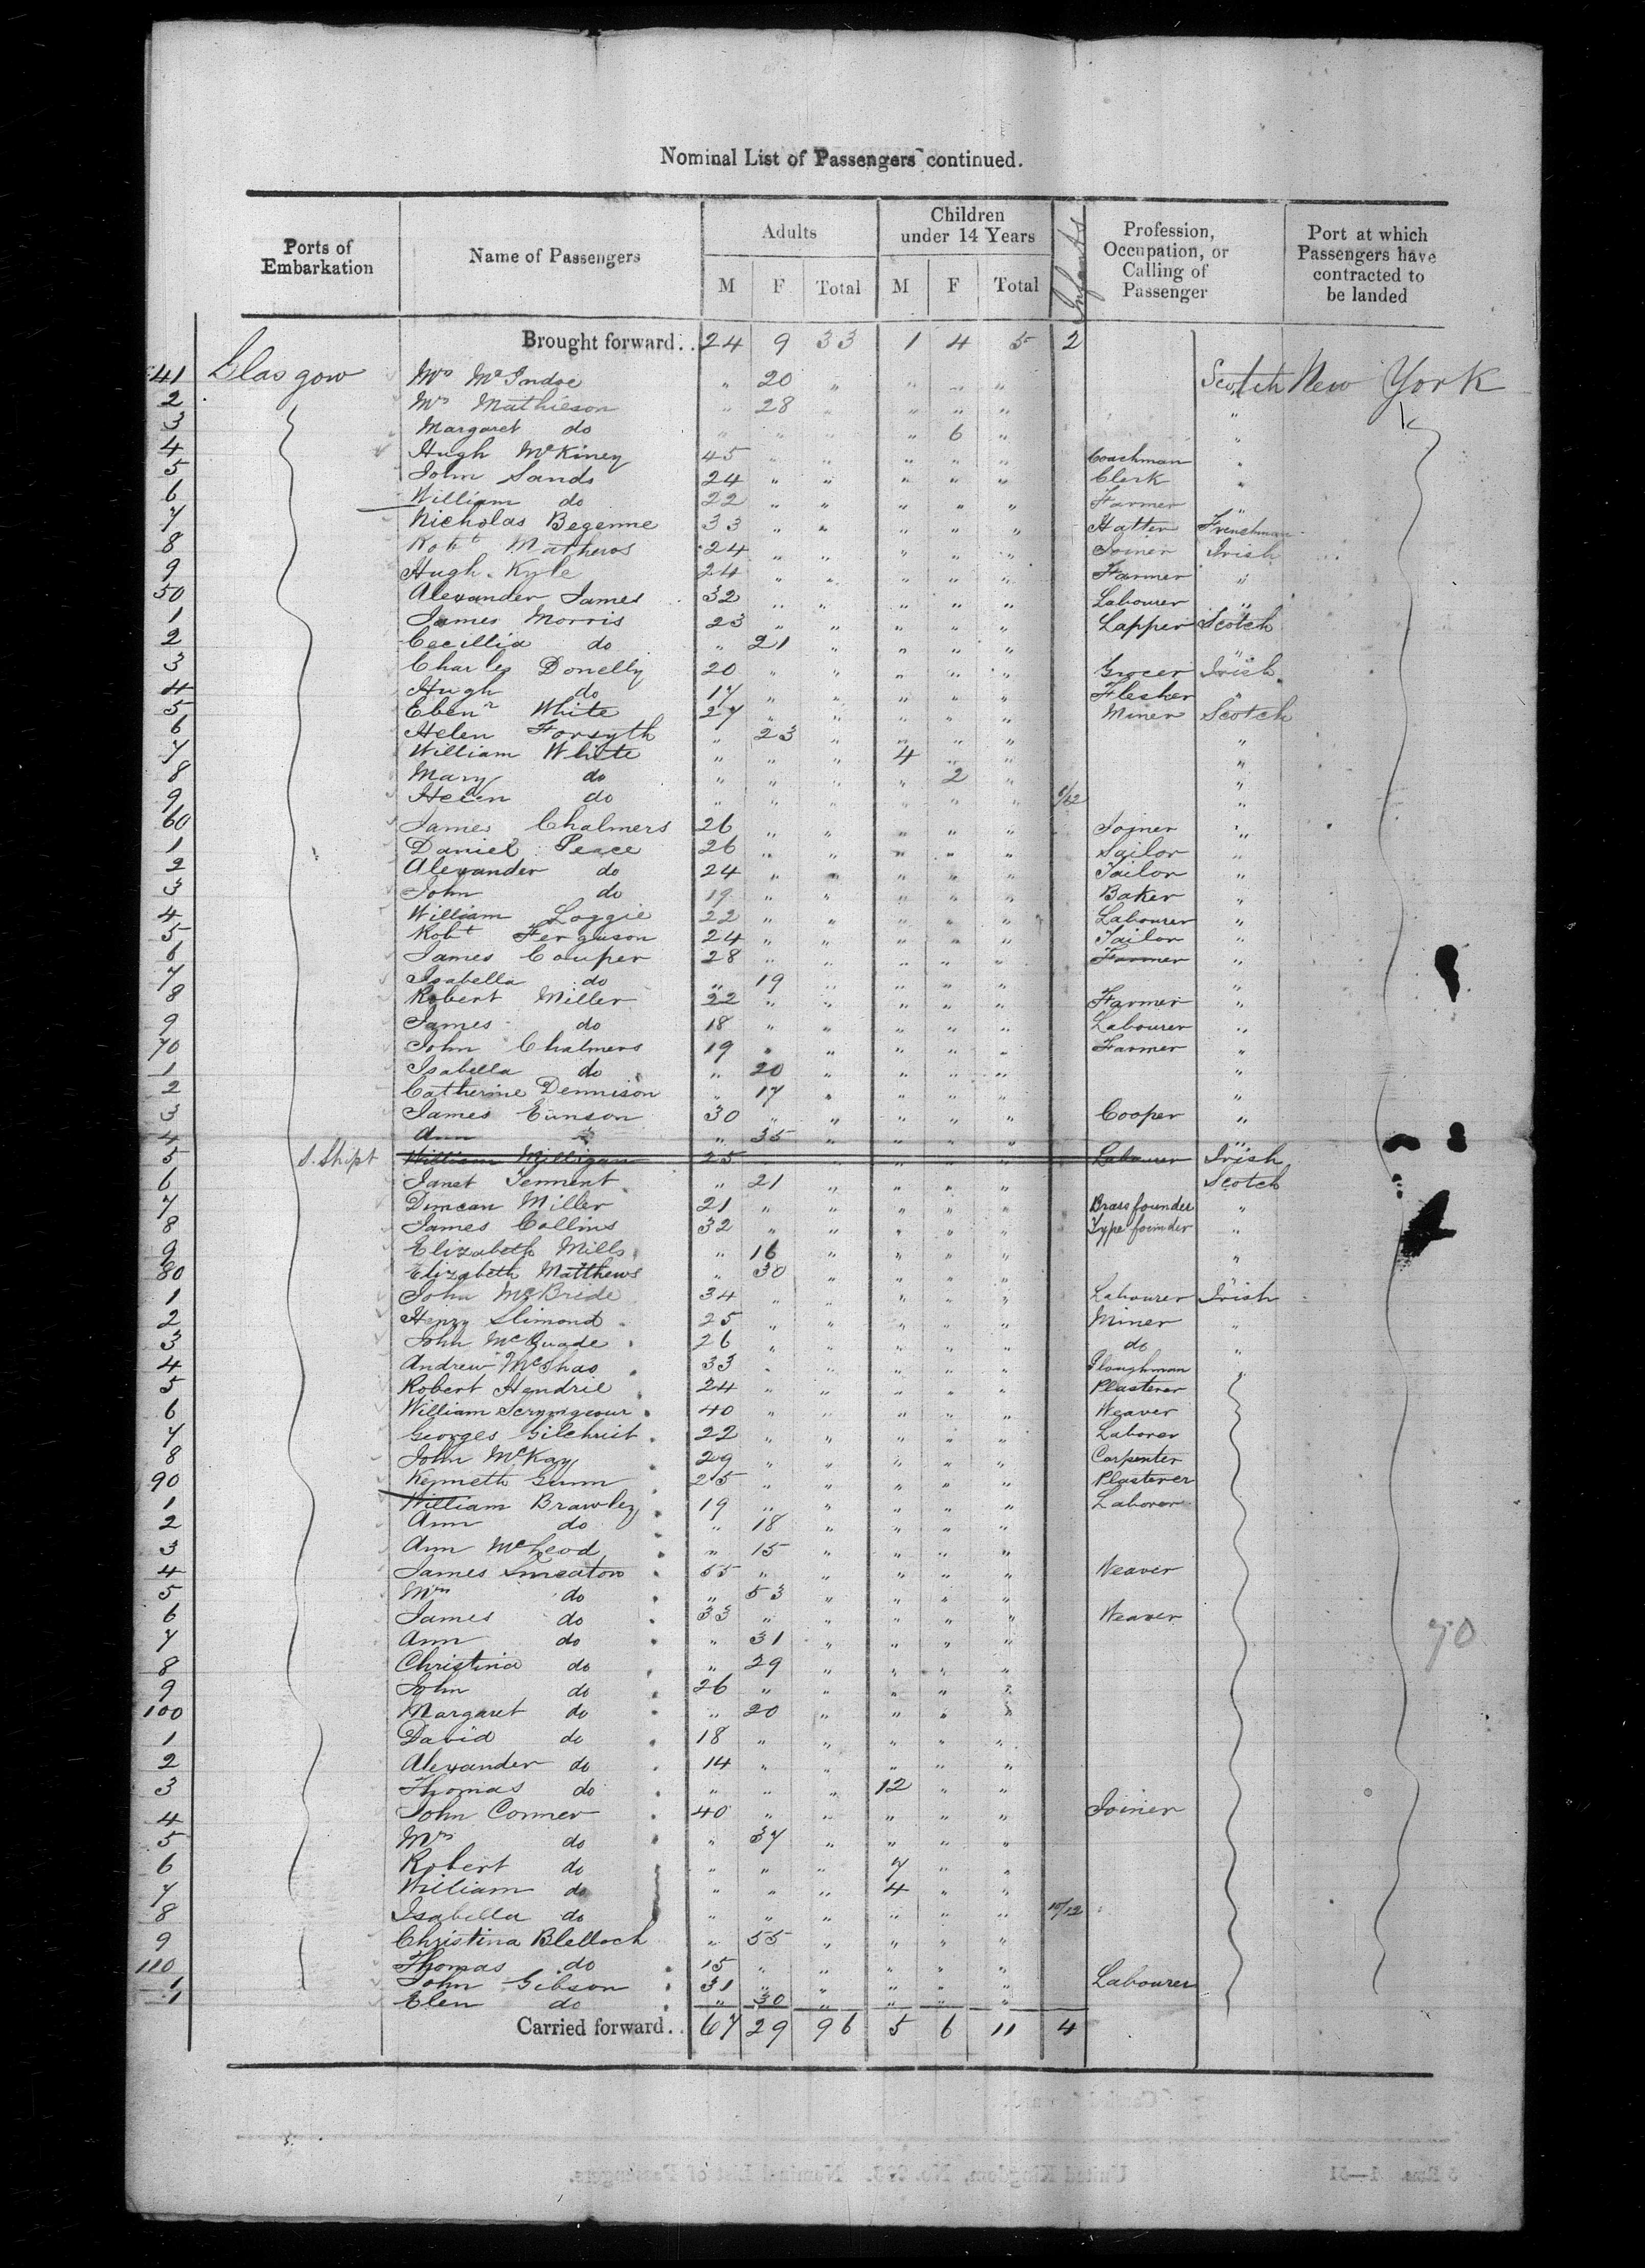 Nominal List of Passengers continued.
Ports of Embarkation | Name of Passengers | Adults M F Total | Children under 14 Years M F Total | Infants | Profession, Occupation, or Calling of Passenger | Port at which Passengers have contracted to be landed
Brought forward.. 24 9 33 1 4 5 2
41 Glasgow Mrs McIndoe " 20 " " " " Scotch New York
2 Mrs Mathieson " 28 " " " " "
3 Margaret do " " " " 6 " "
4 Hugh McKiney 45 " " " " " Coachman "
5 John Sands 24 " " " " " Clerk "
6 William do 22 " " " " " Farmer "
7 Nicholas Begenne 33 " " " " " Hatter Frenchman
8 Robt Mathews 24 " " " " " Joiner Irish
9 Hugh Kyle 24 " " " " " Farmer "
50 Alexander James 32 " " " " " Labourer "
1 James Morris 23 " " " " " Lapper Scotch
2 Cecillia do " 21 " " " " "
3 Charles Donelly 20 " " " " " Grocer Irish
4 Hugh do 17 " " " " " Flesher "
5 Ebenr White 27 " " " " " Miner Scotch
6 Helen Forsyth " 23 " " " " "
7 William White " " " 4 " " "
8 Mary do " " " " 2 " "
9 Helen do " " " " " " "
60 James Chalmers 26 " " " " " Joiner "
1 Daniel Peace 26 " " " " " Sailor "
2 Alexander do 24 " " " " " Tailor "
3 John do 19 " " " " " Baker "
4 William Loggie 22 " " " " " Labourer "
5 Robt Ferguson 24 " " " " " Tailor "
6 James Couper 28 " " " " " Farmer "
7 Isabella do " 19 " " " " "
8 Robert Miller 22 " " " " " Farmer "
9 James do 18 " " " " " Labourer "
70 John Chalmers 19 " " " " " Farmer "
1 Isabella do " 20 " " " " "
2 Catherine Dennison " 17 " " " " "
3 James Eunson 30 " " " " " Cooper "
4 Ann " 35 " " " " "
5 S. Shipt William Milligan 25 " " " " " Labourer Irish
6 Janet Tennent " 21 " " " " Scotch
7 Duncan Miller 21 " " " " " Brass founder "
8 James Collins 32 " " " " " Type founder "
9 Elizabeth Mills " 16 " " " " "
80 Elizabeth Matthews " 30 " " " "
1 John McBride 34 " " " " " Labourer Irish
2 Henry Slimond 25 " " " " " Miner "
3 John McQuade 26 " " " " " do "
4 Andrew McShao 33 " " " " " Ploughman "
5 Robert Hendrie 24 " " " " " Plasterer
6 William Scrymgeour 40 " " " " " Weaver
7 Georges Gilchrist 22 " " " " " Laborer
8 John McKay 29 " " " " " Carpenter
90 Kenneth Gunn 25 " " " " " Plasterer
1 William Brawley 19 " " " " " Laborer
2 Ann do " 18 " " " "
3 Ann McLeod " 15 " " " "
4 James Smeaton 55 " " " " " Weaver
5 Mrs do " 53 " " " "
6 James do 33 " " " " " Weaver
7 Ann do " 31 " " " " 70
8 Christina do " 29 " " " "
9 John do 26 " " " " "
100 Margaret do " 20 " " " "
1 David do 18 " " " " "
2 Alexander do 14 " " " " "
3 Thomas do " " " 12 " "
4 John Conner 40 " " " " " Joiner
5 Mrs do " 37 " " " "
6 Robert do " " " 7 " "
7 William do " " " 4 " "
8 Isabella do " " " " " " 10/12
9 Christina Blelloch " 55 " " " "
110 Thomas do 15 " " " " "
1 John Gibson 31 " " " " " Labourer
1 Elen do " 30 " " " "
Carried forward.. 67 29 96 5 6 11 4